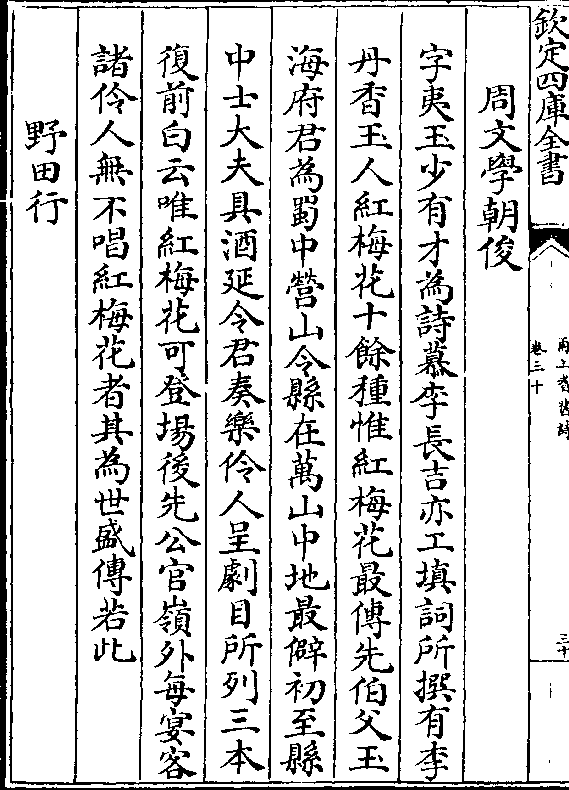 欽定四庫全書
甬上耆舊詩
卷三十
三十
周文學朝俊
字夷玉少有才為詩慕李長吉亦工填詞所撰有李
丹香玉人紅梅花十餘種惟紅梅花最傳先伯父玉
海府君為蜀中營山令縣在萬山中地最僻初至縣
中士大夫具酒延令君奏樂伶人呈劇目所列三本
復前白云唯紅梅花可登場後先公官嶺外每宴客
諸伶人無不唱紅梅花者其為世盛傳若此
野田行